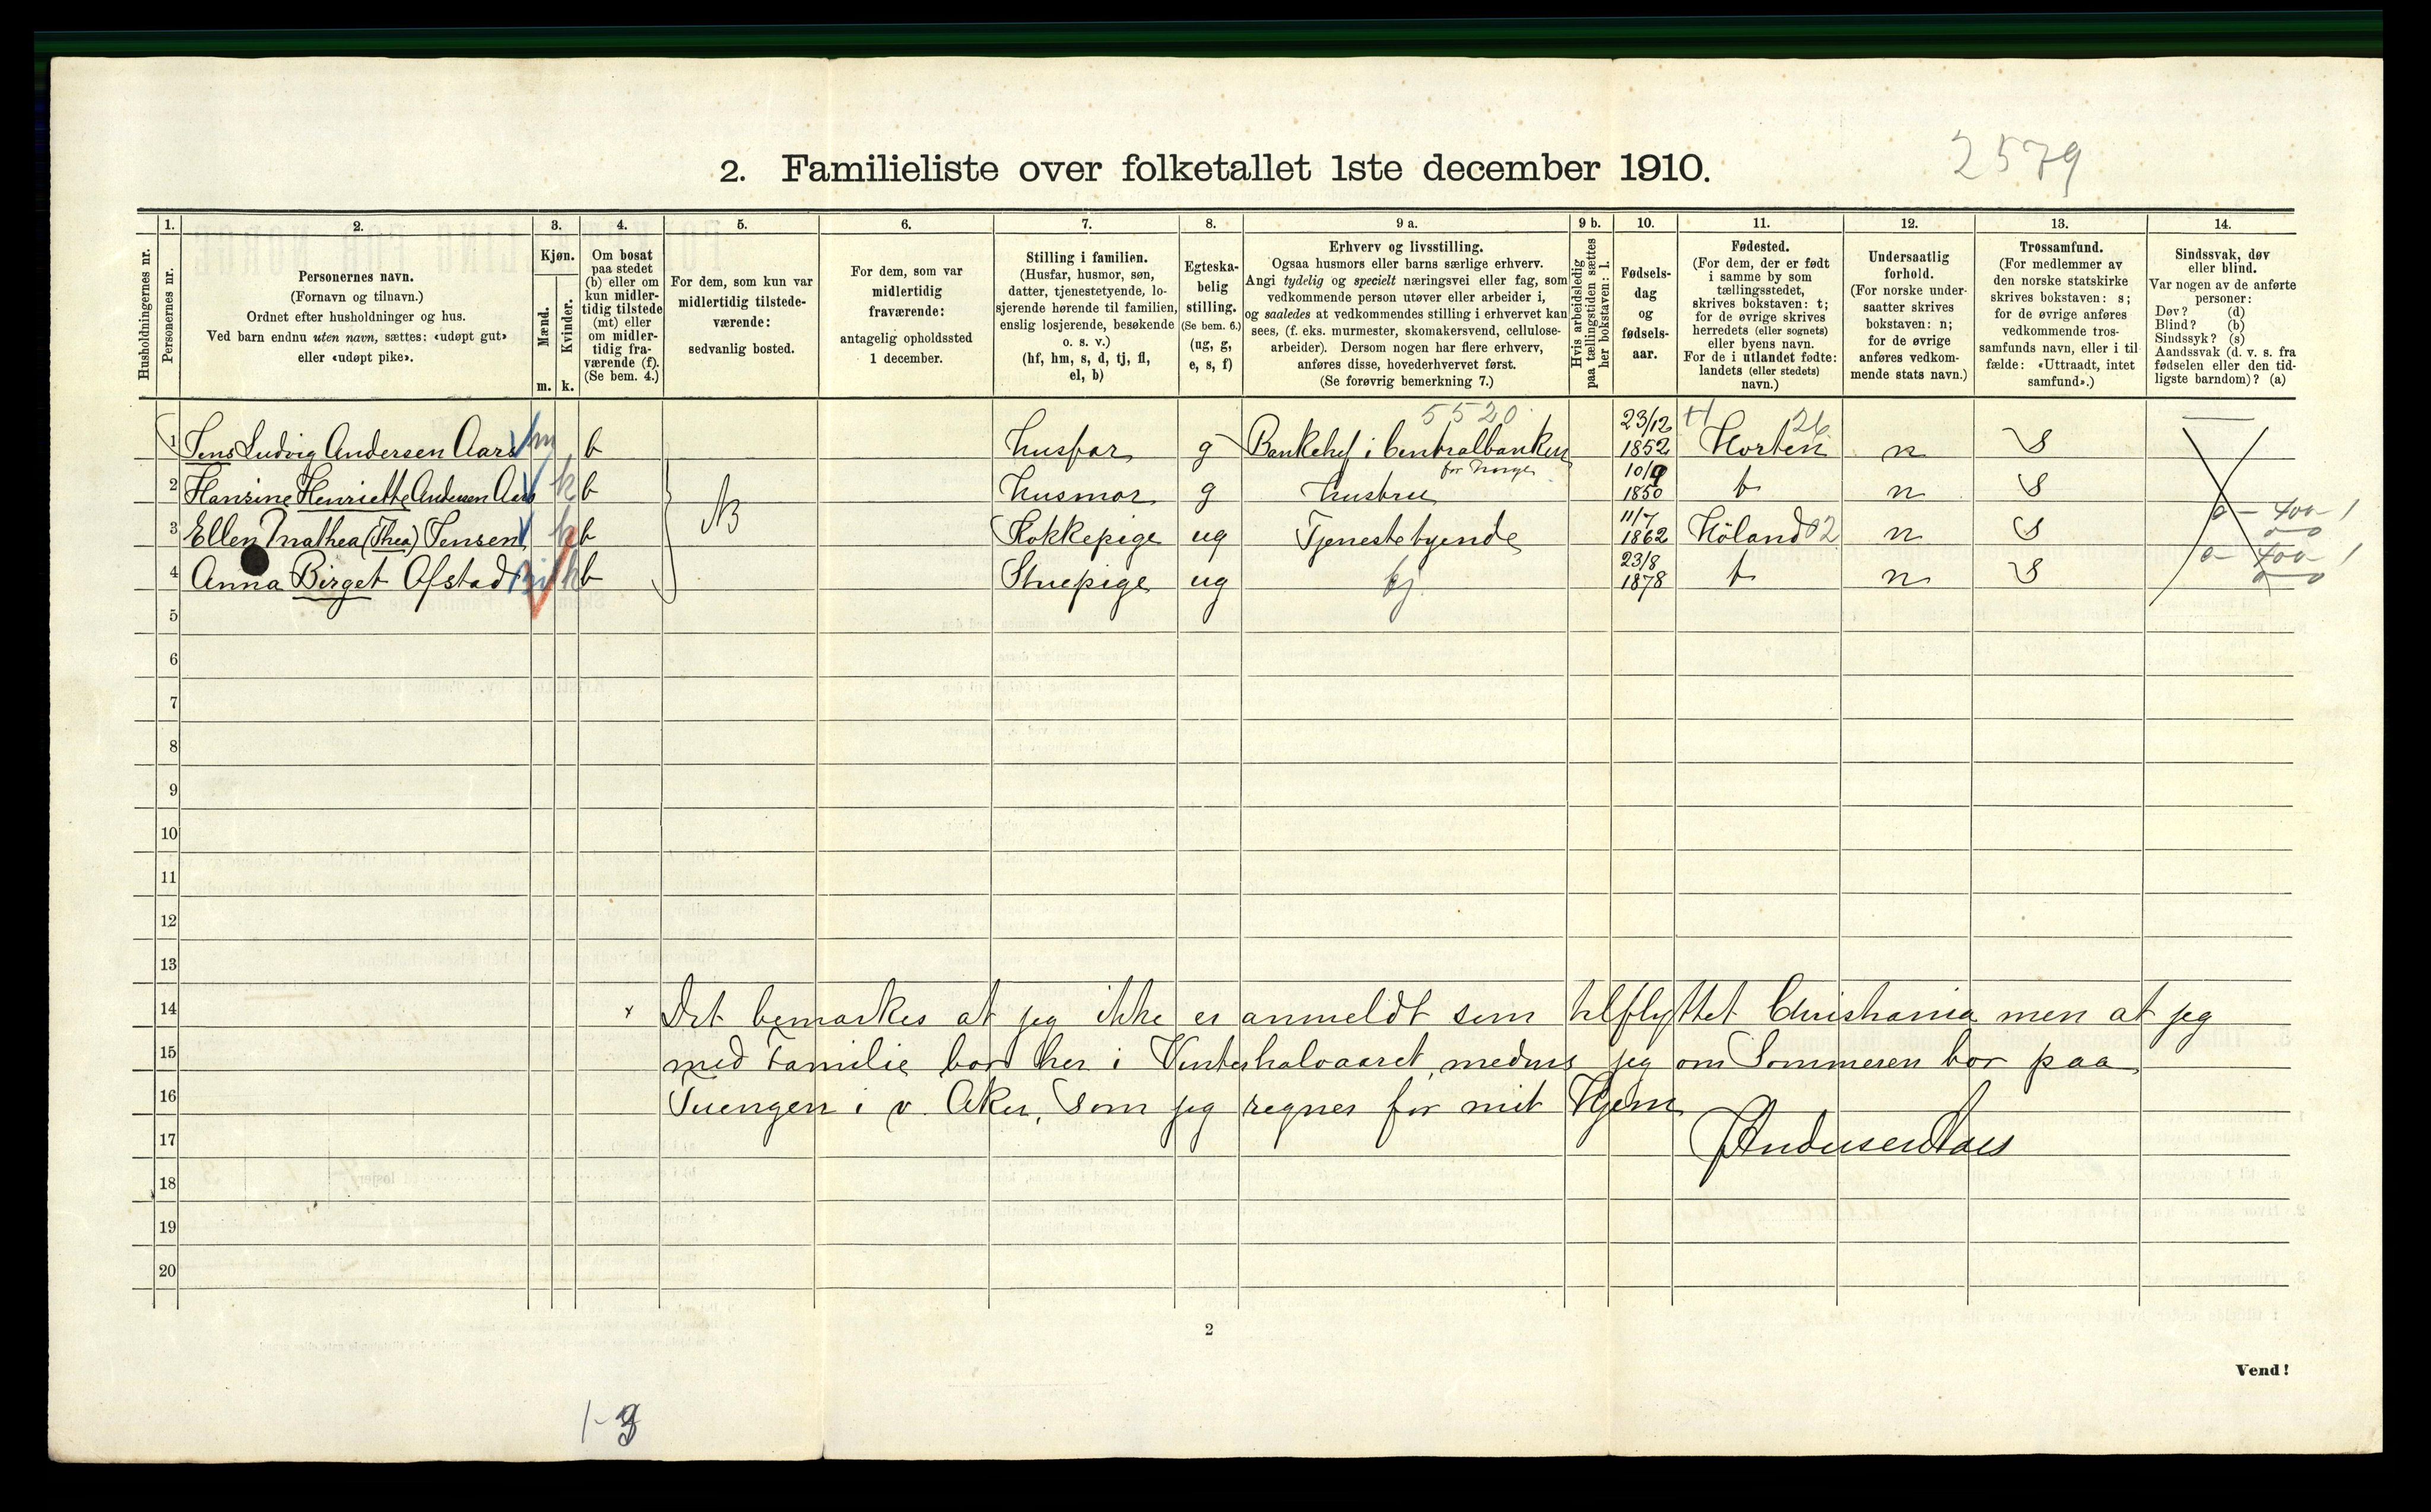 2579
2. Familieliste over folketallet 1ste december 1910.
Husholdningernes nr.
1. Personernes nr.
2. Personernes navn.
(Fornavn og tilnavn.)
Ordnet efter husholdninger og hus.
Ved barn endnu uten navn, sættes: «udøpt gut»
eller «udøpt pike».
3. Kjøn.
Mænd. m.
Kvinder. k.
4. Om bosat
paa stedet
(b) eller om
kun midler-
tidig tilstede
(mt) eller
om midler-
tidig fra-
værende (f).
(Se bem. 4.)
5. For dem, som kun var
midlertidig tilstede-
værende:
sedvanlig bosted.
6. For dem, som var
midlertidig
fraværende:
antagelig opholdssted
1 december.
7. Stilling i familien.
(Husfar, husmor, søn,
datter, tjenestetyende, lo-
sjerende hørende til familien,
enslig losjerende, besøkende
o. s. v.)
(hf, hm, s, d, tj, fl,
el, b)
8. Egteska-
belig
stilling.
(Se bem. 6.)
(ug, g,
e, s, f)
9 a. Erhverv og livsstilling.
Ogsaa husmors eller barns særlige erhverv.
Angi tydelig og specielt næringsvei eller fag, som
vedkommende person utøver eller arbeider i,
og saaledes at vedkommendes stilling i erhvervet kan
sees, (f. eks. murmester, skomakersvend, cellulose-
arbeider). Dersom nogen har flere erhverv,
anføres disse, hovederhvervet først.
(Se forøvrig bemerkning 7.)
9 b. Hvis arbeidsledig
paa tællingstiden sættes
her bokstaven: l.
10. Fødsels-
dag
og
fødsels-
aar.
11. Fødested.
(For dem, der er født
i samme by som
tællingsstedet,
skrives bokstaven: t;
for de øvrige skrives
herredets (eller sognets)
eller byens navn.
For de i utlandet fødte:
landets (eller stedets)
navn.)
12. Undersaatlig
forhold.
(For norske under-
saatter skrives
bokstaven: n;
for de øvrige
anføres vedkom-
mende stats navn.)
13. Trossamfund.
(For medlemmer av
den norske statskirke
skrives bokstaven: s;
for de øvrige anføres
vedkommende tros-
samfunds navn, eller i til
fælde: «Uttraadt, intet
samfund».)
14. Sindssvak, døv
eller blind.
Var nogen av de anførte
personer:
Døv? (d)
Blind? (b)
Sindssyk? (s)
Aandssvak (d. v. s. fra
fødselen eller den tid-
ligste barndom)? (a)
5520
1 Jens Ludvig Andersen Aars m b Husfar g Bankchef i Centralbanken for Norge 23/12 1852 Horten 26 n S
2 Hansine Henriette Andersen Aars k b NB Husmor g Hustru 10/9 1850 t n S
3 Ellen Mathea (Thea) Jensen k b Kokkepige ug Tjenestetyende 11/7 1862 Höland 02 n S 0 - 400 - 1
4 Anna Birget Ofstad k b Stuepige ug tj 23/8 1878 t n S 0 - 400 - 1
5
6
7
8
9
10
11
12
13
14 x Det bemærkes at jeg ikke er anmeldt som tilflyttet Christiania men at jeg
15 med Familie bor her i Vinterhalvaaret, medens jeg om Sommeren bor paa
16 Tuengen i v. Aker, som jeg regner for mit Hjem
17 JAndersenAars
18
19
20
2
Vend!
1-3